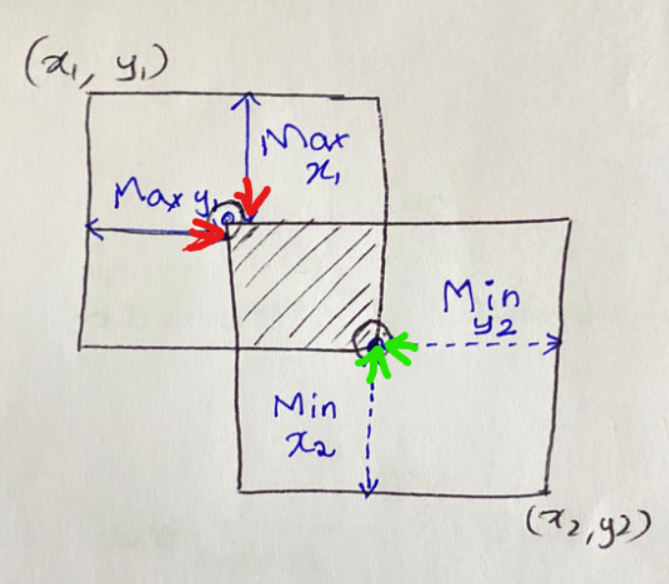 (x₁, y₁)
Max
x₁
Max y₁
Min
y2
Min
x₂
(x₂, y2)